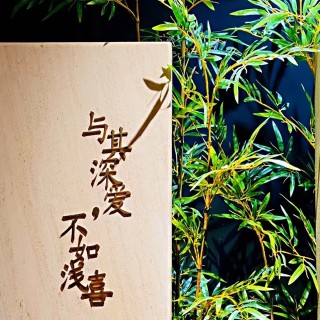 与其深爱，
不如浅喜